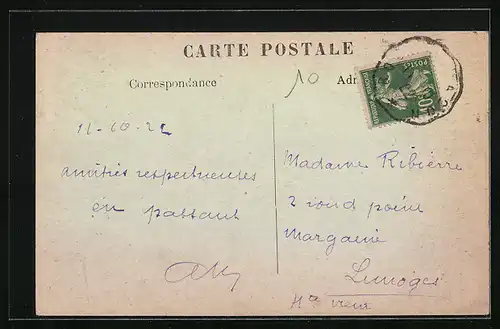 CARTE POSTALE
Correspondance
10
Adr
POSTES
10
11-10-22
amitiés respectueuses
en passant
Madame Ribierre
2 rond point
Margaine
Limoges
Hte Vienne